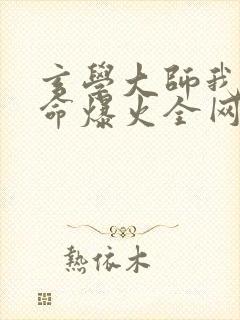 玄學大師我
命爆火全网
熱依木